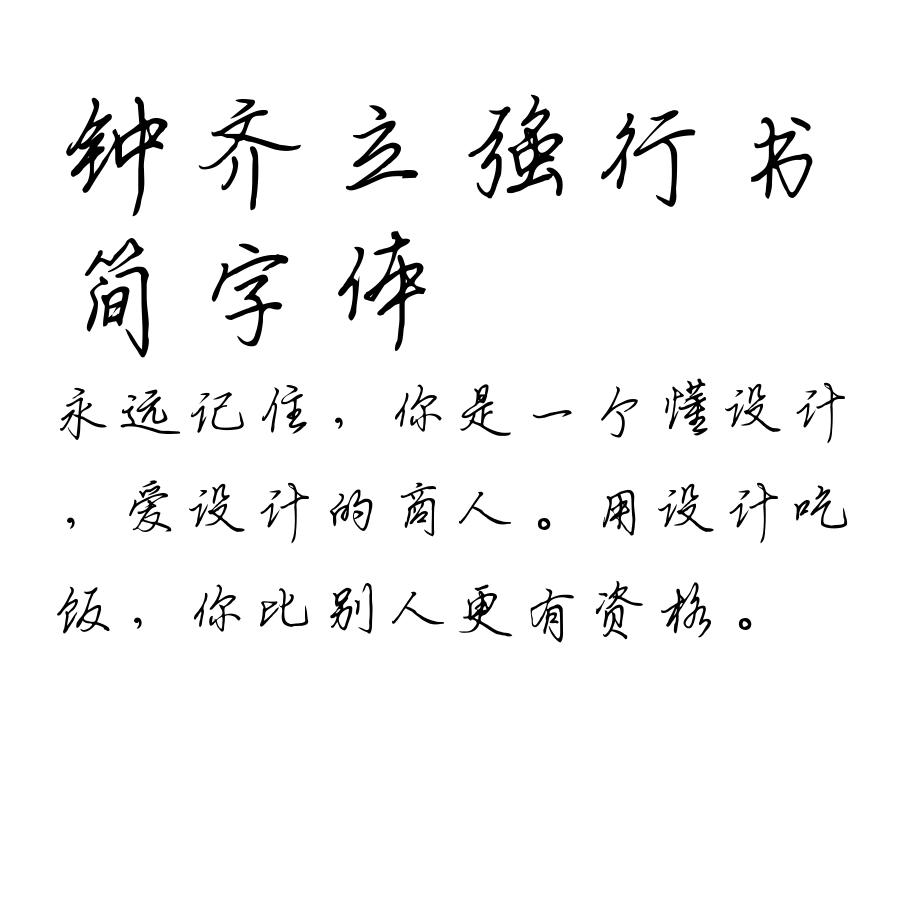 钟齐立强行书
简字体
永远记住，你是一个懂设计
，爱设计的商人。用设计吃
饭，你比别人更有资格。